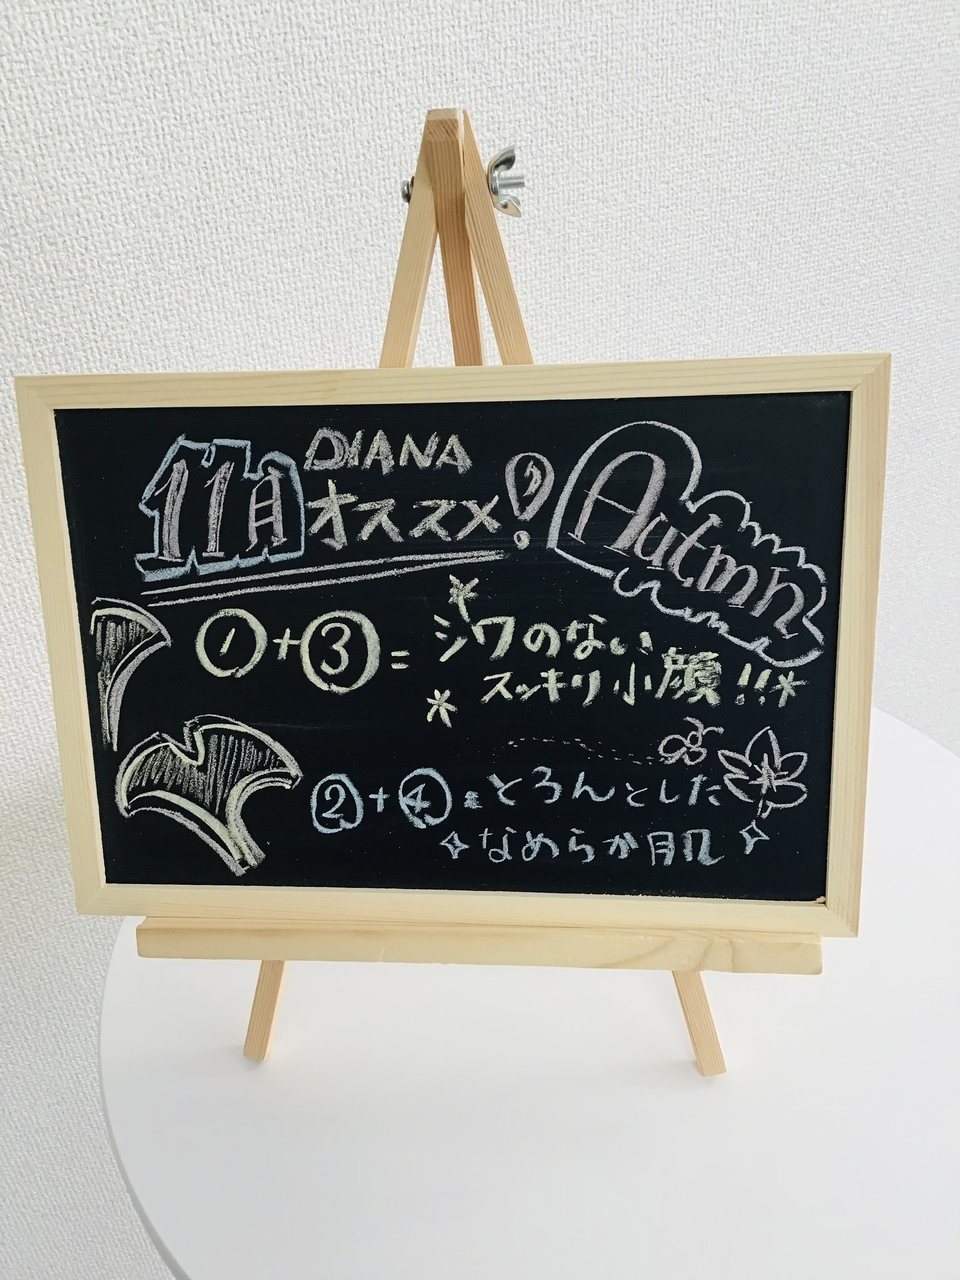 11月
DIANA
オススメ!
Autmn
①+③=シワのない
スッキリ小顔!!
②+④=とろんとした
なめらか肌